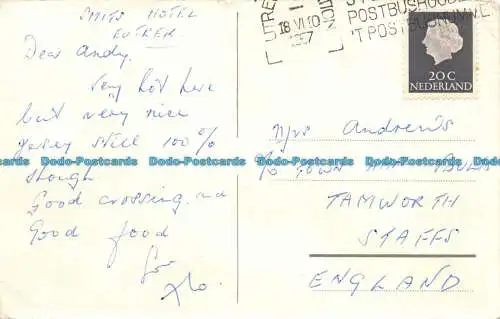 SMITS HOTEL
Dear Andy.
Very hot here
but very nice
still 100%
though
Good crossing and
Good food
xlo.
UTRE
18 VII 10
POSTBUSNUMMER
20 C
NEDERLAND
Mrs Andrews
c/o TOWN HALL
TAMWORTH
STAFFS
ENGLAND
Dodo-Postcards Dodo-Postcards Dodo-Postcards Dodo-Postcards
Dodo-Postcards Dodo-Postcards Dodo-Postcards